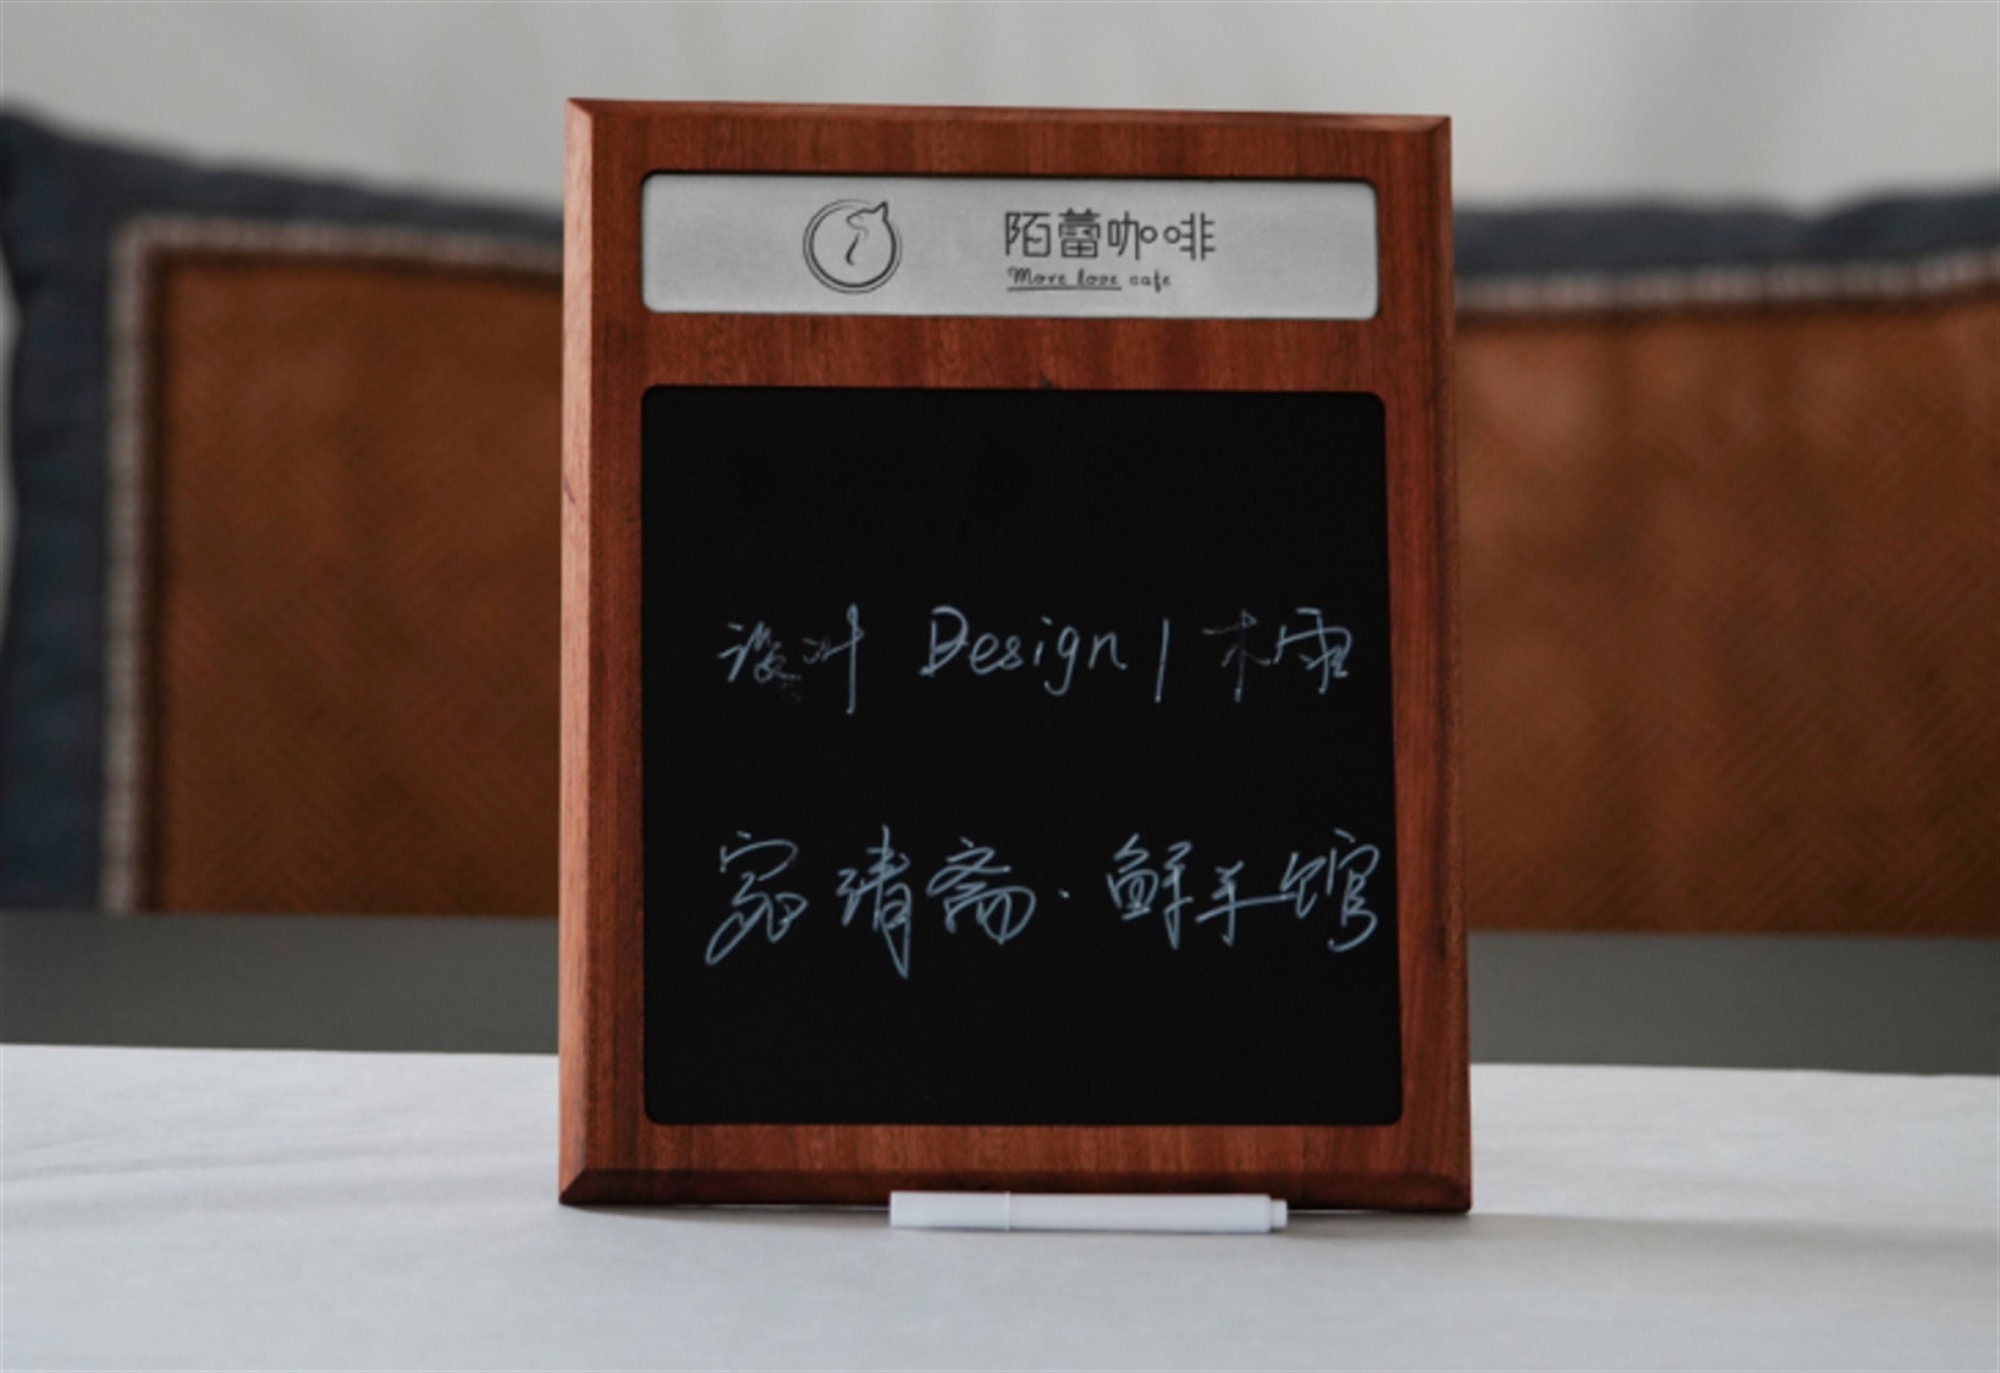 陌蕾咖啡
More love cafe
设计 Design | 木雷
清斋·鲜羊馆